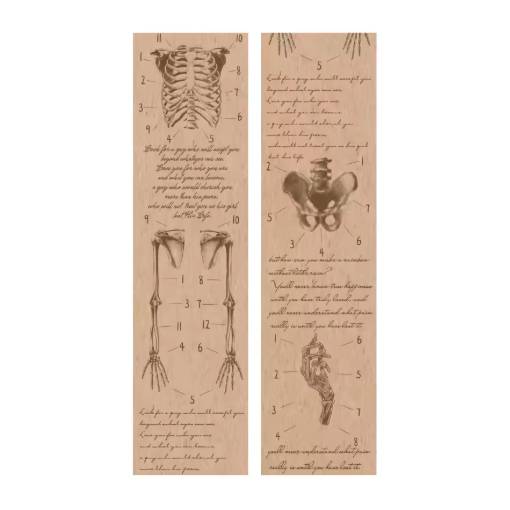 10
1
2
8
3
7
9
6
4
5
Look for a guy who will accept you
beyond what eyes can see.
Love you for who you are
and what you can become.
a guy who would cherish you
more than his poem,
who will not treat you as his girl
but His Life.
9
10
1
8
3
7
11
12
4
6
5
Look for a guy who will accept you
beyond what eyes can see
Love you for who you are
and what you can become
a guy who would cherish you
more than his poem
5
Look for a guy who will accept you
beyond what eyes can see
Love you for who you are
and what you can become
a guy who would cherish you
more than his poem
who will not treat you as his girl
but his life
2
1
7
5
3
6
4
but how can you make a rainbow
without little rain?
You'll never know true happiness
until you have truly loved, and
you'll never understand what pain
really is until you have lost it.
3
1
2
5
6
7
4
8
you'll never understand what pain
really is until you have lost it.